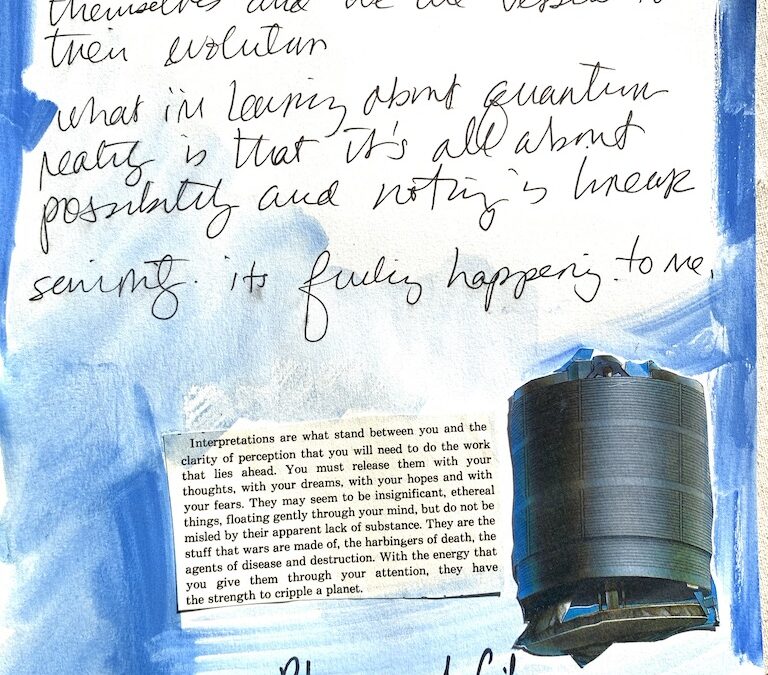 themselves and we are vessels to
their evolution
what i'm learning about quantum
reality is that it's all about
possibility and nothing is linear
seriously. its fucking happening to me.
Interpretations are what stand between you and the
clarity of perception that you will need to do the work
that lies ahead. You must release them with your
thoughts, with your dreams, with your hopes and with
your fears. They may seem to be insignificant, ethereal
things, floating gently through your mind, but do not be
misled by their apparent lack of substance. They are the
stuff that wars are made of, the harbingers of death, the
agents of disease and destruction. With the energy that
you give them through your attention, they have
the strength to cripple a planet.